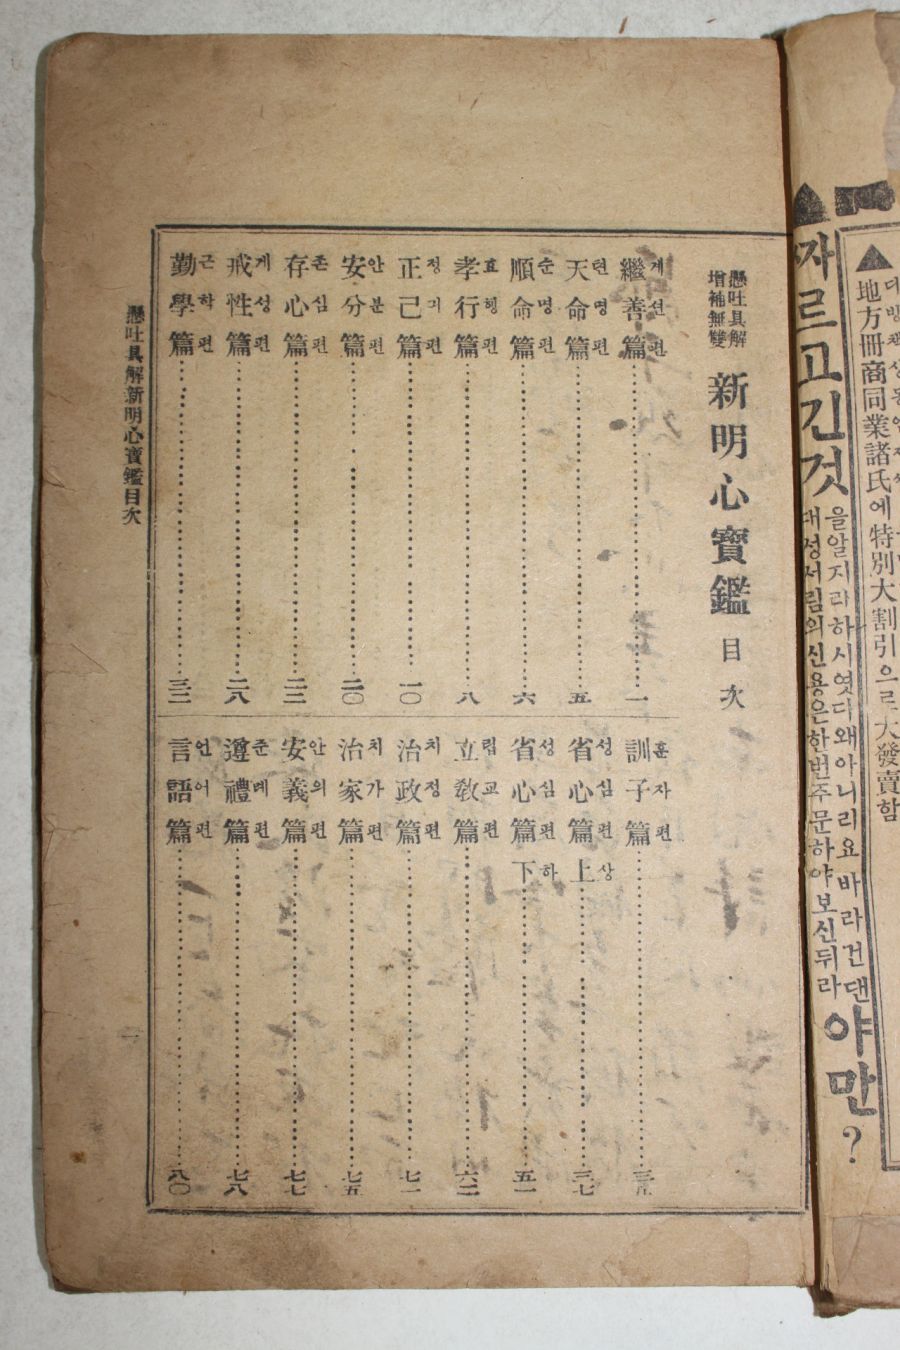 懸吐具解
增補無雙
新明心寶鑑 目次
繼善篇 계선편 一
天命篇 텬명편 五
順命篇 순명편 六
孝行篇 효행편 八
正己篇 정긔편 一〇
安分篇 안분편 二〇
存心篇 존심편 二二
戒性篇 계성편 二八
勤學篇 근학편 三二
訓子篇 훈자편
省心篇上 성심편상 三七
省心篇下 성심편하 五一
立敎篇 립교편 六二
治政篇 치정편 七一
治家篇 치가편 七五
安義篇 안의편 七七
遵禮篇 준례편 七八
言語篇 언어편 八〇
懸吐具解新明心寶鑑目次
一
▲地方冊商同業諸氏에特別大割引으로大發賣함
자르고긴것
을알지라하시엿디왜아니리요바라건댄
대성서림의신용은한번주문하야보신뒤라
야만?